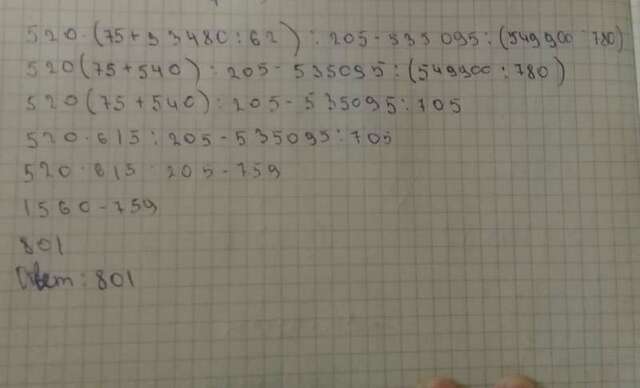 520·(75+33480:62):205-535095:(549900:780)
520(75+540):205-535095:(549900:780)
520(75+540):205-535095:705
520·615:205-535095:705
520·615:205-759
1560-759
801
Ответ: 801